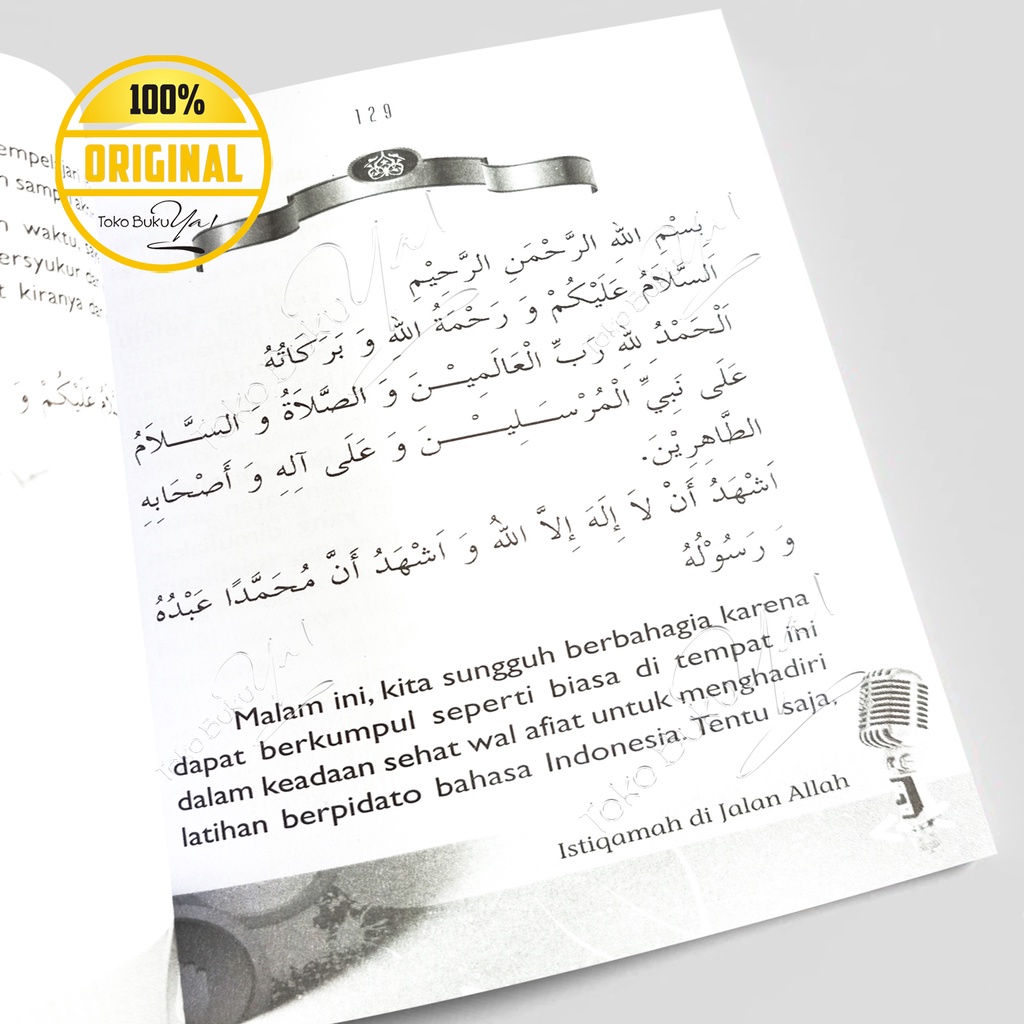 100%
ORIGINAL
Toko Buku Ya!
waktu,
kiranya
129
بِسْمِ اللهِ الرَّحْمَنِ الرَّحِيْمِ
اَلسَّلَامُ عَلَيْكُمْ وَ رَحْمَةُ اللهِ وَ بَرَكَاتُهُ
اَلْحَمْدُ لِلهِ رَبِّ الْعَالَمِيْنَ وَ الصَّلَاةُ وَ السَّلَامُ
عَلَى نَبِيِّ الْمُرْسَلِيْنَ وَ عَلَى آلِهِ وَ أَصْحَابِهِ
الطَّاهِرِيْنَ.
اَشْهَدُ أَنْ لاَ إِلَهَ إِلاَّ اللهُ وَ اَشْهَدُ أَنَّ مُحَمَّدًا عَبْدُهُ
وَ رَسُوْلُهُ
Malam ini, kita sungguh berbahagia karena
dapat berkumpul seperti biasa di tempat ini
dalam keadaan sehat wal afiat untuk menghadiri
latihan berpidato bahasa Indonesia. Tentu saja,
Istiqamah di Jalan Allah